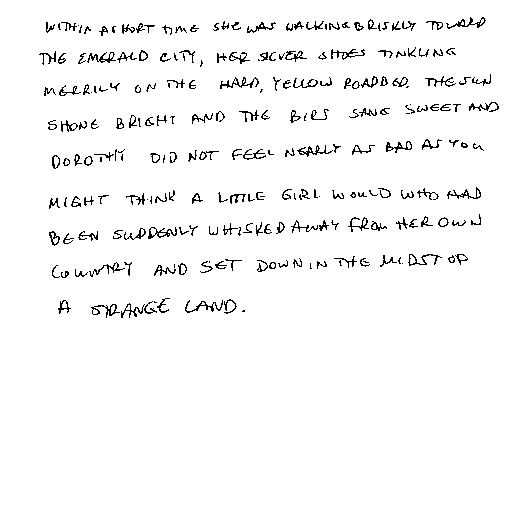 WITHIN A SHORT TIME SHE WAS WALKING BRISKLY TOWARD
THE EMERALD CITY, HER SILVER SHOES TINKLING
MERRILY ON THE HARD, YELLOW ROADBED. THE SUN
SHONE BRIGHT AND THE BIRS SANG SWEET AND
DOROTHY DID NOT FEEL NEARLY AS BAD AS YOU
MIGHT THINK A LITTLE GIRL WOULD WHO HAD
BEEN SUDDENLY WHISKED AWAY FROM HER OWN
COUNTRY AND SET DOWN IN THE MIDST OF
A STRANGE LAND.